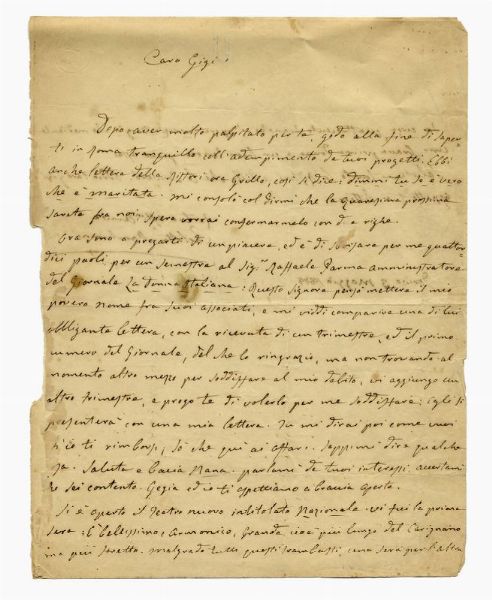 Caro Gigi
Dopo aver molto palpitato per te godo alla fine di saper
ti in Roma tranquillo coll'adempimento de tuoi progetti. Ebbi
anche lettera della Ristori ora Grillo, così si dice; dimmi tu se è vero
che è maritata. mi consoli col dirmi che la quaresima prossima
sarete fra noi: spero vorrai confermarmelo con d. e righe.
Ora sono a pregarti di un piacere, ed è di sborsare per me quattor-
dici paoli per un semestre al Sig.r Raffaele Parma amministratore
del Giornale La Donna Italiana: Questo signore pensò mettere il mio
povero nome fra suoi associati, e mi viddi comparire una di lui
obbligante lettera, con la ricevuta di un trimestre, ed il primo
numero del Giornale, del che lo ringrazio, ma non trovando al
momento altro mezzo per soddisfare al mio debito, vi aggiungo un
altro trimestre, e prego te di volerlo per me soddisfare: egli si
presenterà con una mia lettera. Tu mi dirai poi come vuoi
ch'io ti rimborsi, so che qui ai affari. Sappimi dire qualche
sa. Saluta e bacia Nana. parlami de tuoi interessi, accertami
se sei contento. Gegia ed io ti aspettiamo a braccia aperte.
Si è aperto il Teatro nuovo intitolato Nazionale. vi fui la prima
sera: è bellissimo, Armonico, Grande, cioè più lungo del Carignano
ma più stretto. malgrado tutti questi trambusti, una sera per l'altra